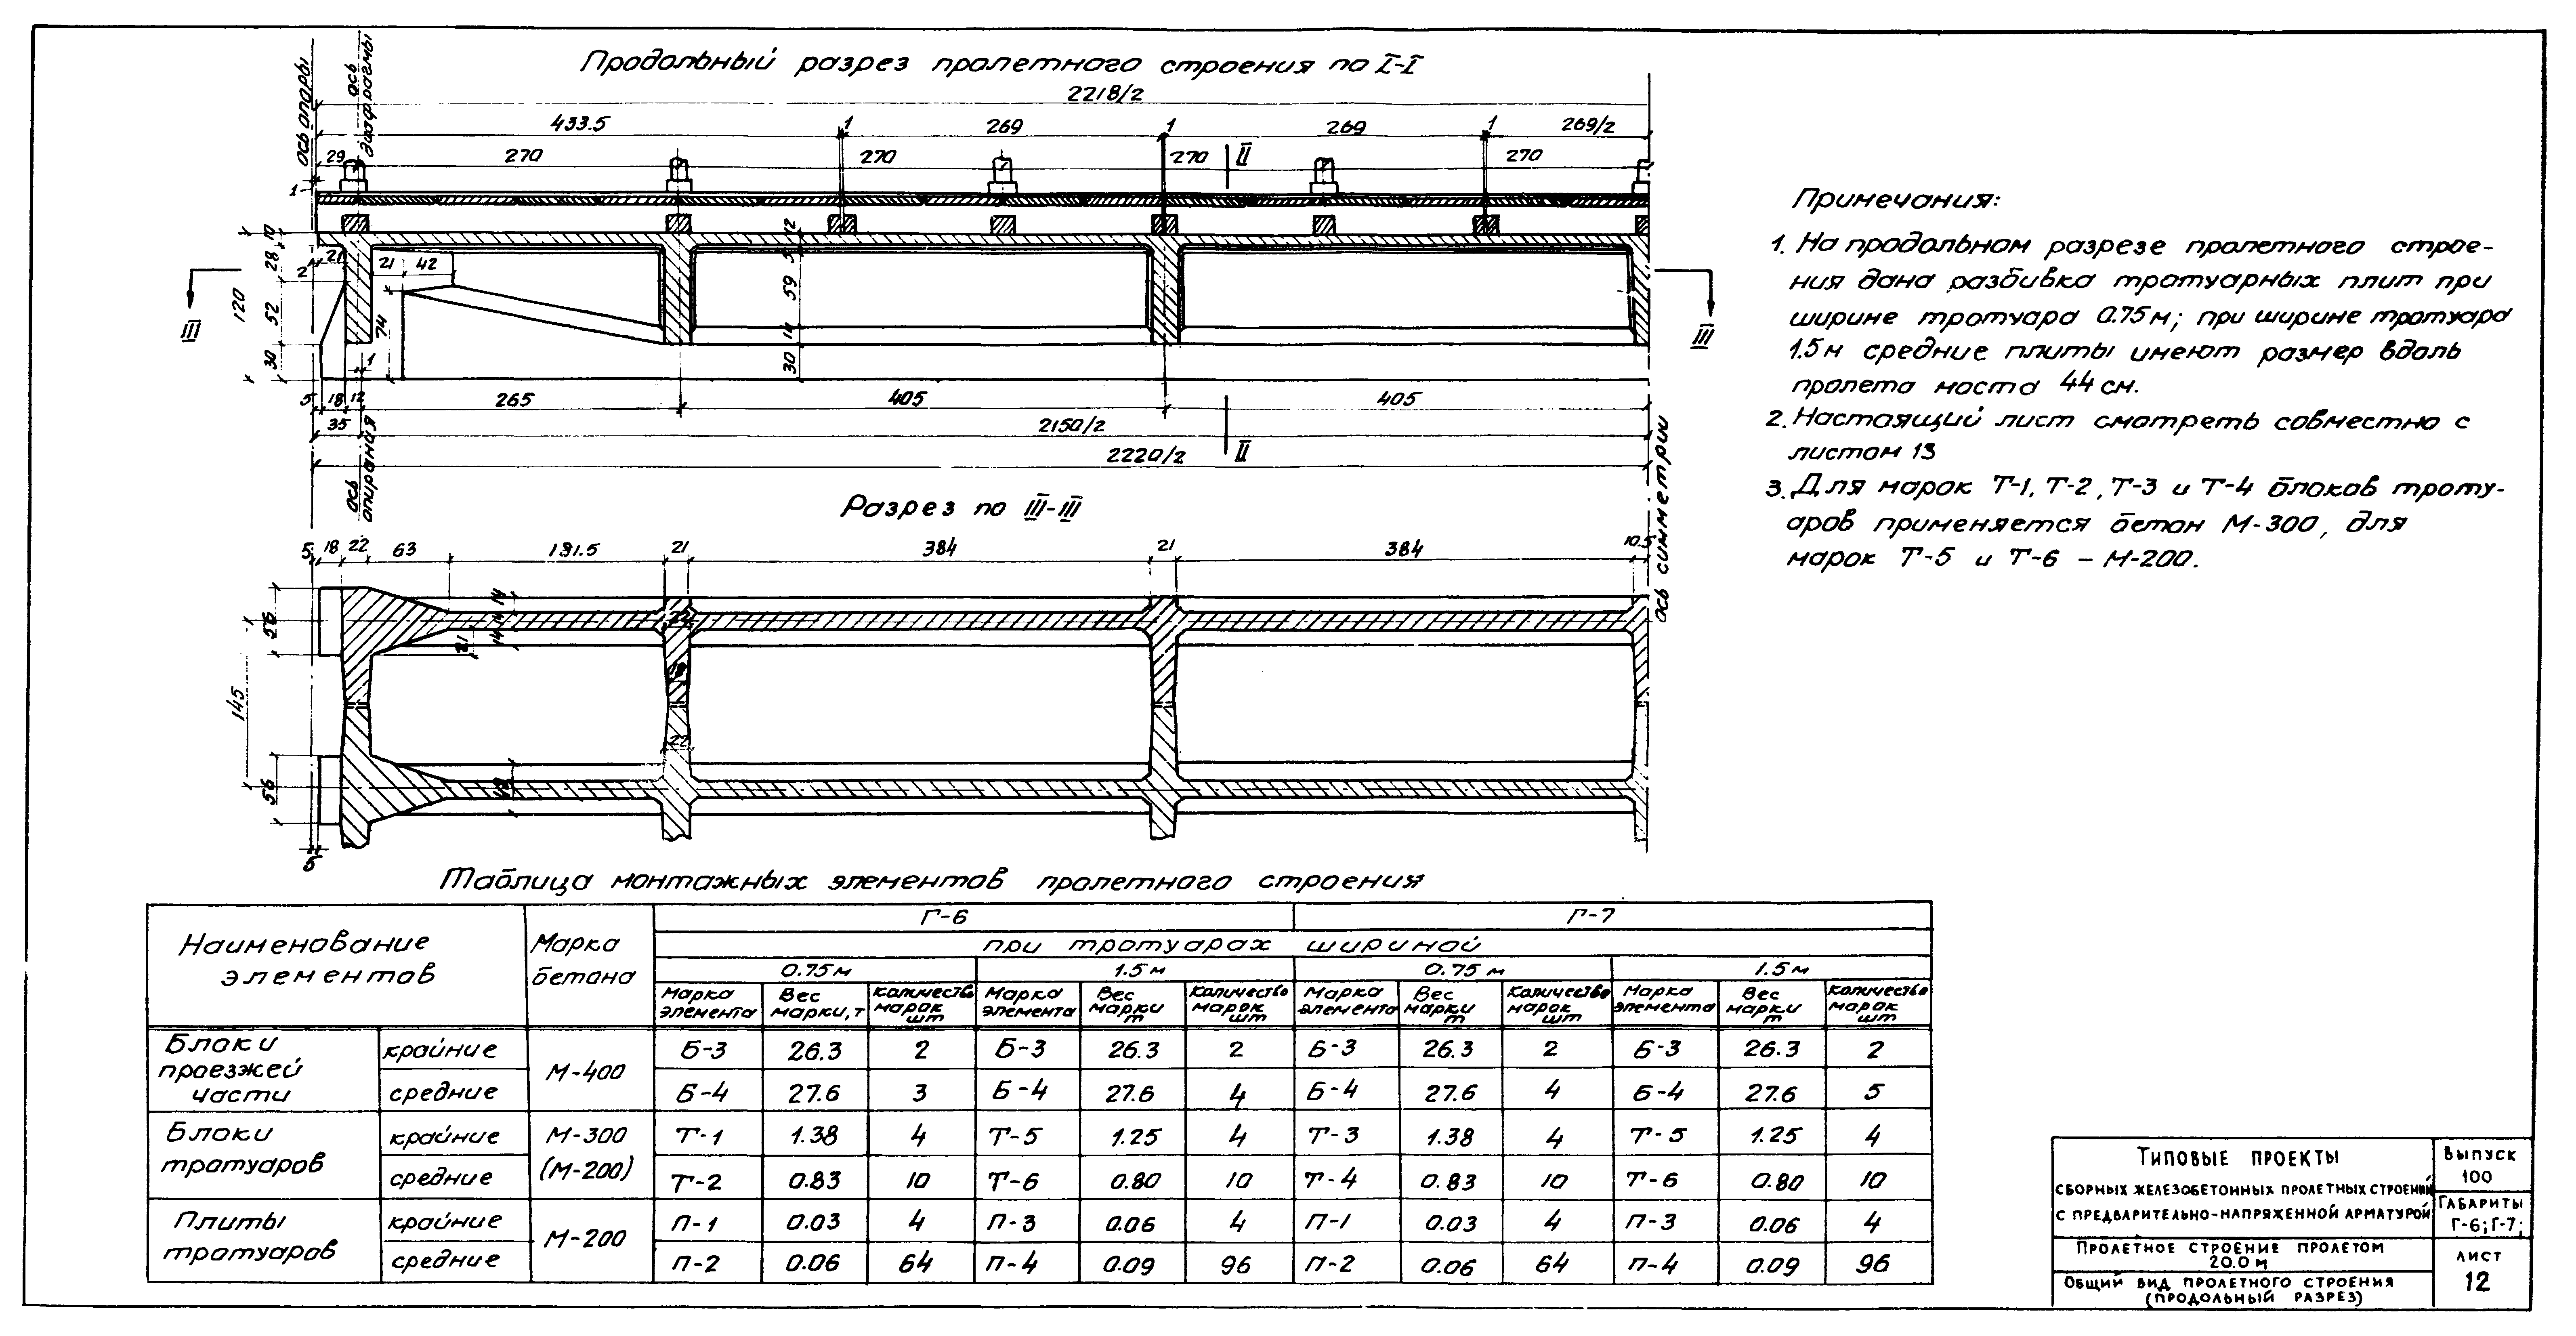 Продольный разрез пролетного строения по I-I
ось опоры
ось диафрагмы
2218/2
433.5 1 269 1 269 1 269/2
29 270 270 270 II 270
1
10
28
120
52
30
2
21
21 42
74
1
12
5
59
14
30
III
III
5 18 12 265 405 405
35 2150/2
II
2220/2
ось опирания
ось симметрии
Разрез по III-III
5 18 22 63 191.5 21 384 21 384 10.5
56
145
56
14
14
14
21
22
18
22
42
5
Примечания:
1. На продольном разрезе пролетного строе-
ния дана разбивка тротуарных плит при
ширине тротуара 0.75м; при ширине тротуара
1.5м средние плиты имеют размер вдоль
пролета моста 44 см.
2. Настоящий лист смотреть совместно с
листом 13
3. Для марок Т-1, Т-2, Т-3 и Т-4 блоков троту-
аров применяется бетон М-300, для
марок Т-5 и Т-6 – М-200.
Таблица монтажных элементов пролетного строения
Наименование элементов Марка бетона Г-6 Г-7
при тротуарах шириной
0.75м 1.5м 0.75м 1.5м
Марка элемента Вес марки, т Количество марок шт Марка элемента Вес марки т Количество марок шт Марка элемента Вес марки т Количество марок шт Марка элемента Вес марки т Количество марок шт
Блоки проезжей части крайние М-400 Б-3 26.3 2 Б-3 26.3 2 Б-3 26.3 2 Б-3 26.3 2
средние Б-4 27.6 3 Б-4 27.6 4 Б-4 27.6 4 Б-4 27.6 5
Блоки тротуаров крайние М-300 (М-200) Т-1 1.38 4 Т-5 1.25 4 Т-3 1.38 4 Т-5 1.25 4
средние Т-2 0.83 10 Т-6 0.80 10 Т-4 0.83 10 Т-6 0.80 10
Плиты тротуаров крайние М-200 П-1 0.03 4 П-3 0.06 4 П-1 0.03 4 П-3 0.06 4
средние П-2 0.06 64 П-4 0.09 96 П-2 0.06 64 П-4 0.09 96
Типовые проекты
сборных железобетонных пролетных строений
с предварительно-напряженной арматурой
Выпуск
100
Габариты
Г-6; Г-7;
Пролетное строение пролетом
20.0 м
Общий вид пролетного строения
(продольный разрез)
лист
12